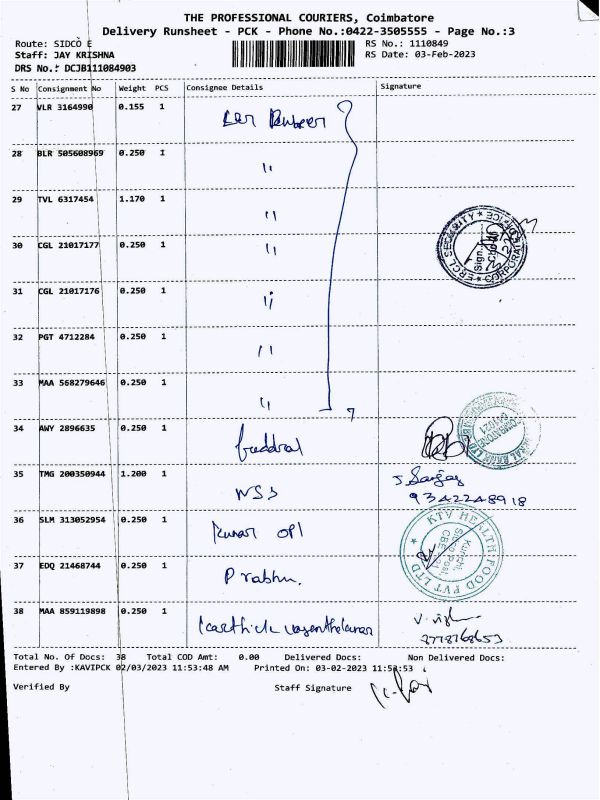 THE PROFESSIONAL COURIERS, Coimbatore
Delivery Runsheet - PCK - Phone No.:0422-3505555 - Page No.:3
Route: SIDCO E
RS No.: 1110849
Staff: JAY KRISHNA
RS Date: 03-Feb-2023
DRS No.: DCJB111084903
S No Consignment No Weight PCS Consignee Details Signature
27 VLR 3164990 0.155 1
28 BLR 505608969 0.250 1 "
29 TVL 6317454 1.170 1 "
30 CGL 21017177 0.250 1 "
31 CGL 21017176 0.250 1 "
32 PGT 4712284 0.250 1 "
33 MAA 568279646 0.250 1 "
34 AWY 2896635 0.250 1
35 TMG 200350944 1.200 1 NSS J. Sanjay
9342248918
36 SLM 313052954 0.250 1 Kumar OPI
KTV HEALTH FOOD PVT LTD
37 EDQ 21468744 0.250 1 Prabhu.
38 MAA 859119898 0.250 1 Karthick
Total No. Of Docs: 38 Total COD Amt: 0.00 Delivered Docs: Non Delivered Docs:
Entered By :KAVIPCK 02/03/2023 11:53:48 AM Printed On: 03-02-2023 11:53:53
Verified By Staff Signature